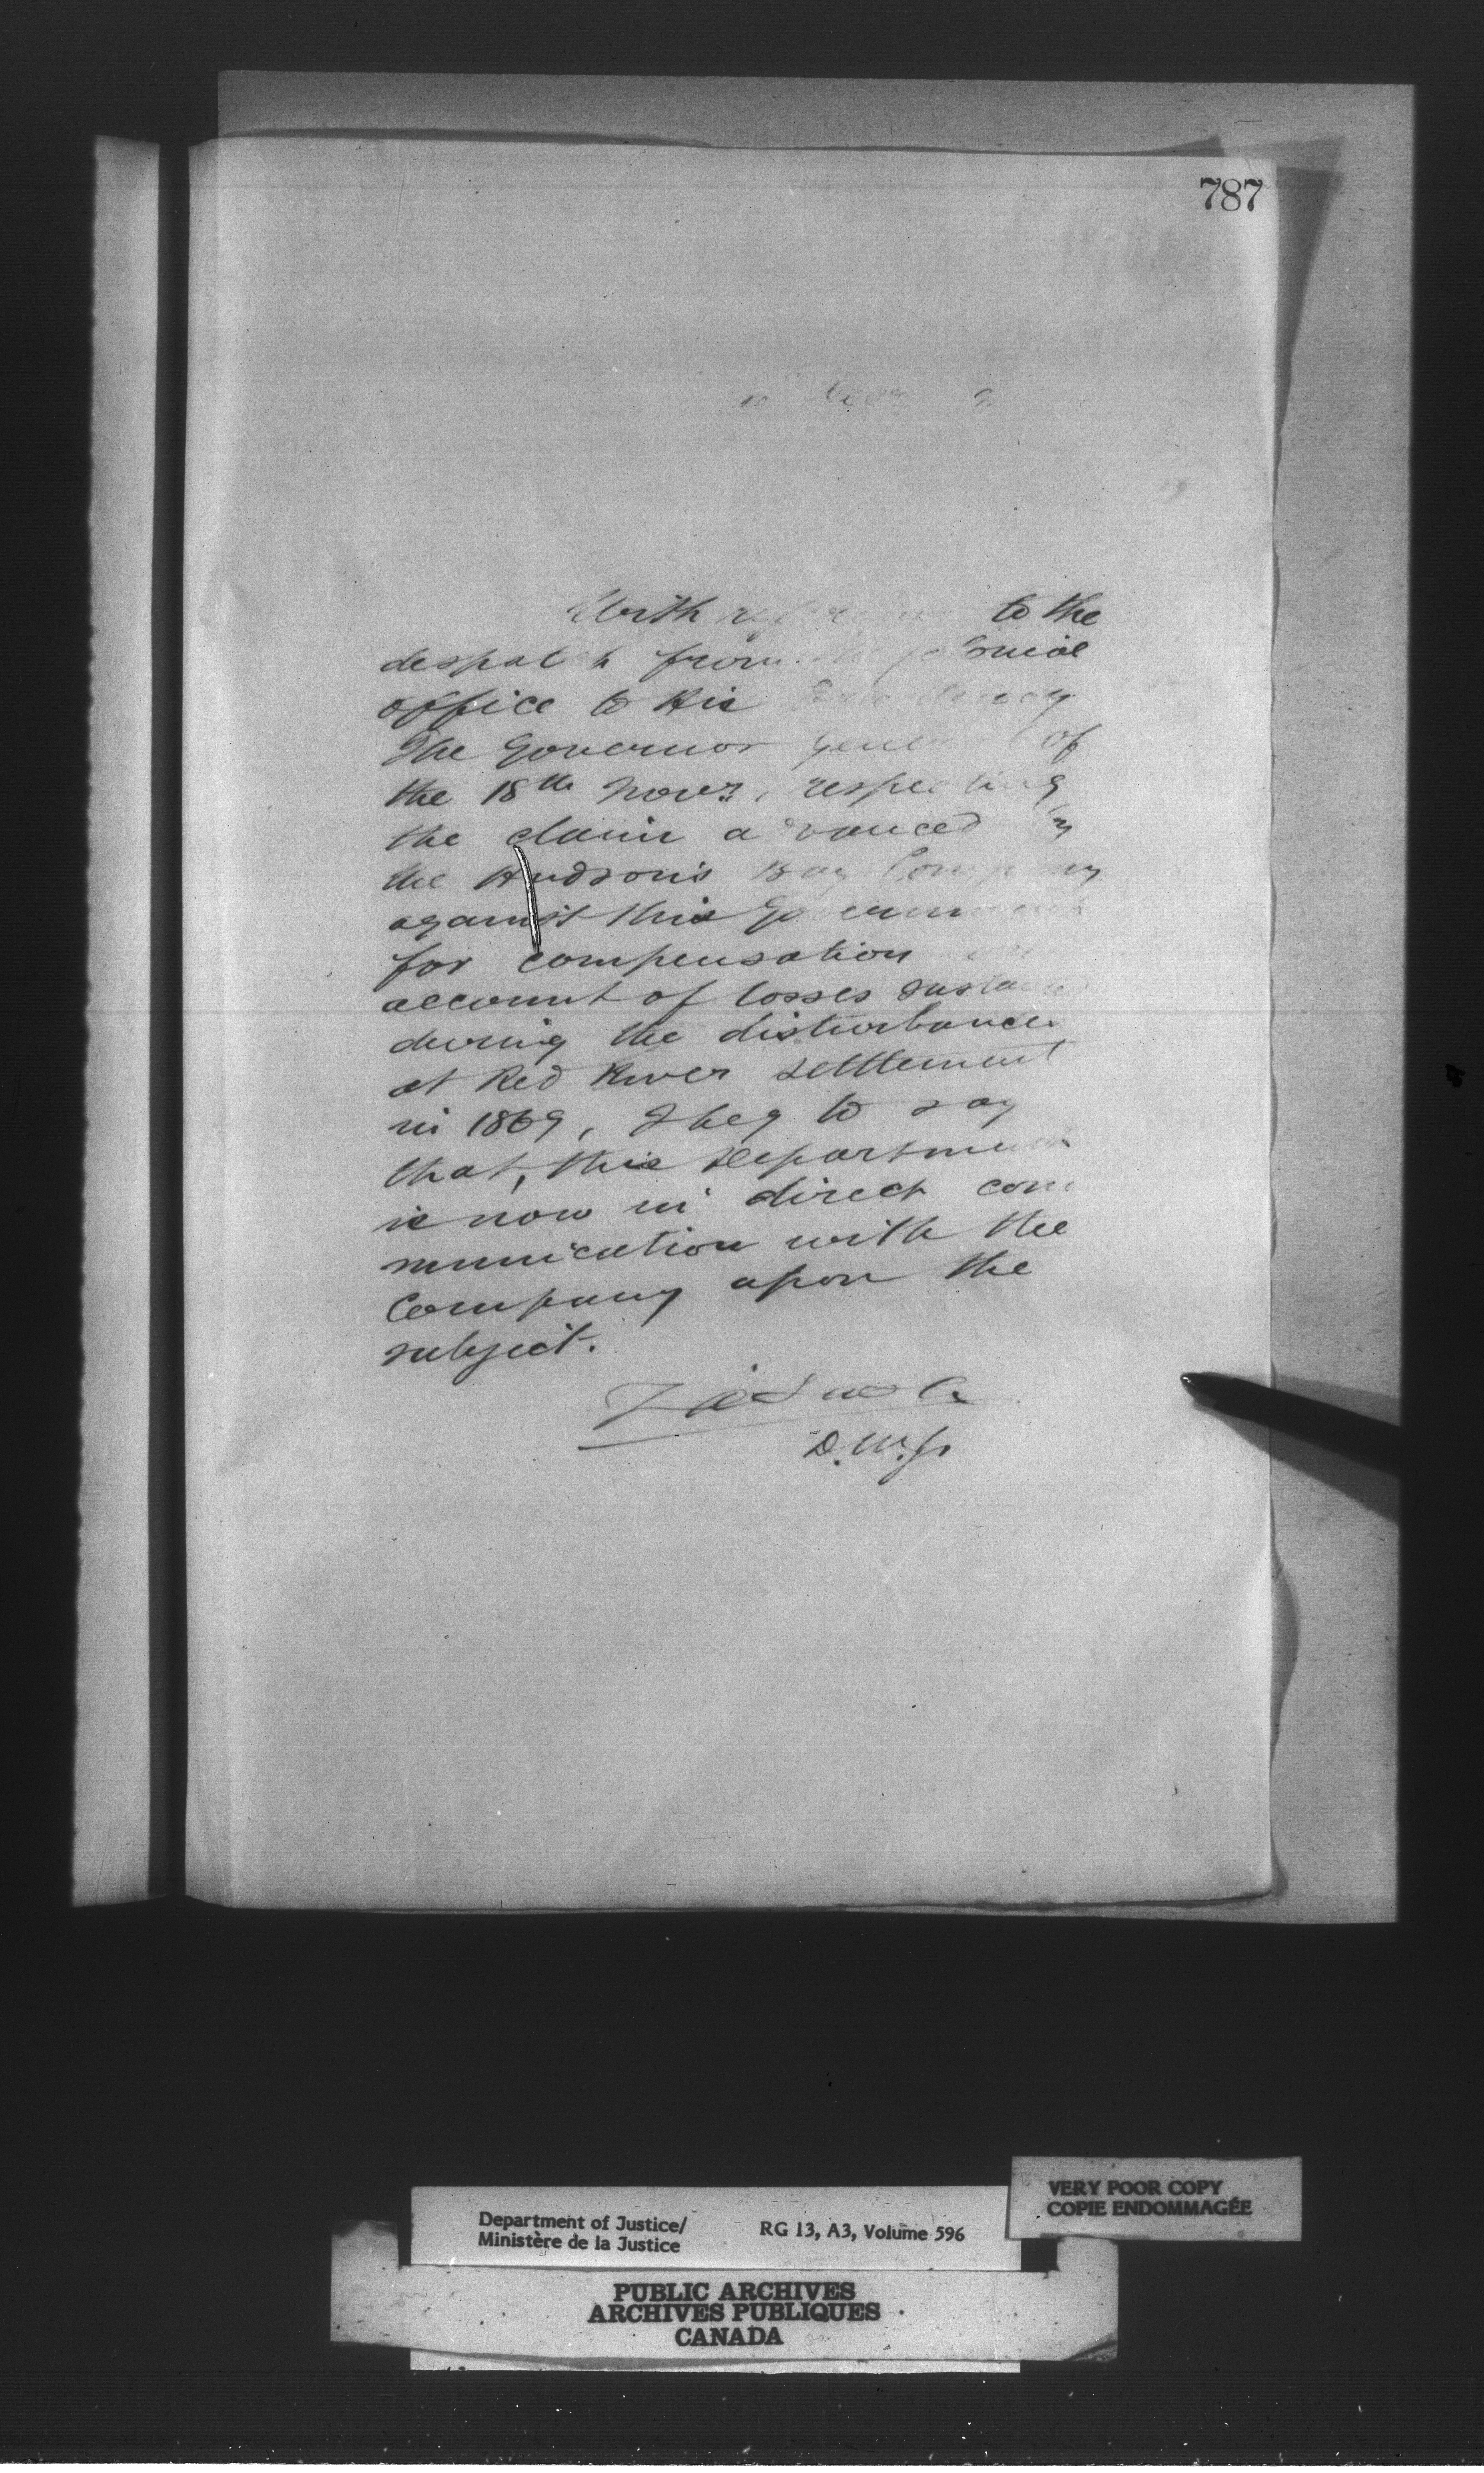 787
With reference to the
despatch from the Colonial
office to His Excellency
The Governor General of
the 18th Novr, respecting
the claim advanced by
the Hudson's Bay Company
against this Government
for compensation on
account of losses sustained
during the disturbances
at Red River settlement
in 1869, I beg to say
that, this Department
is now in direct com
munication with the
Company upon the
subject.
D.M.J.
VERY POOR COPY
COPIE ENDOMMAGÉE
Department of Justice/
Ministère de la Justice
RG 13, A3, Volume 596
PUBLIC ARCHIVES
ARCHIVES PUBLIQUES
CANADA